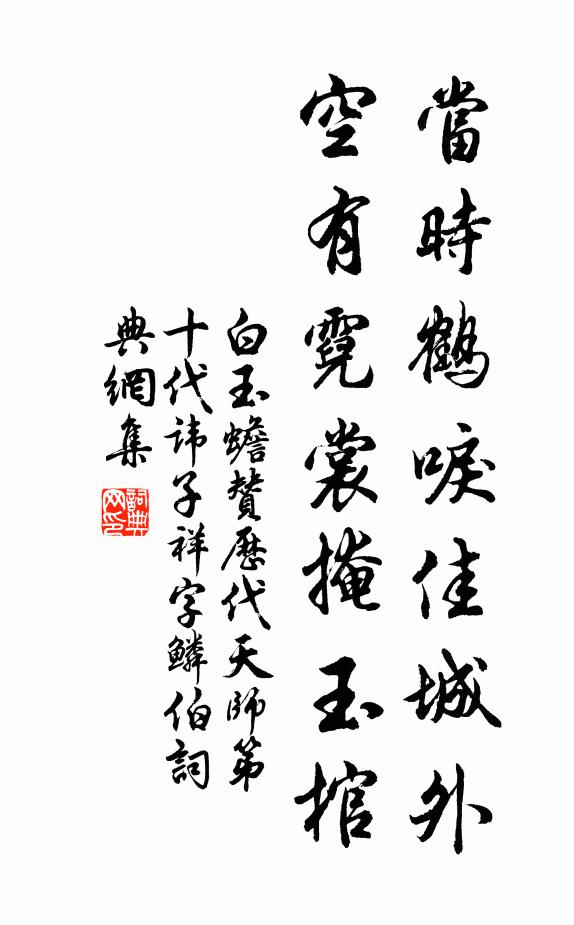 當時鶴唳佳城外
空有霓裳掩玉棺
白玉蟾贊歷代天師第
十代諱子祥字鱗伯詞
典網集
詞典网印